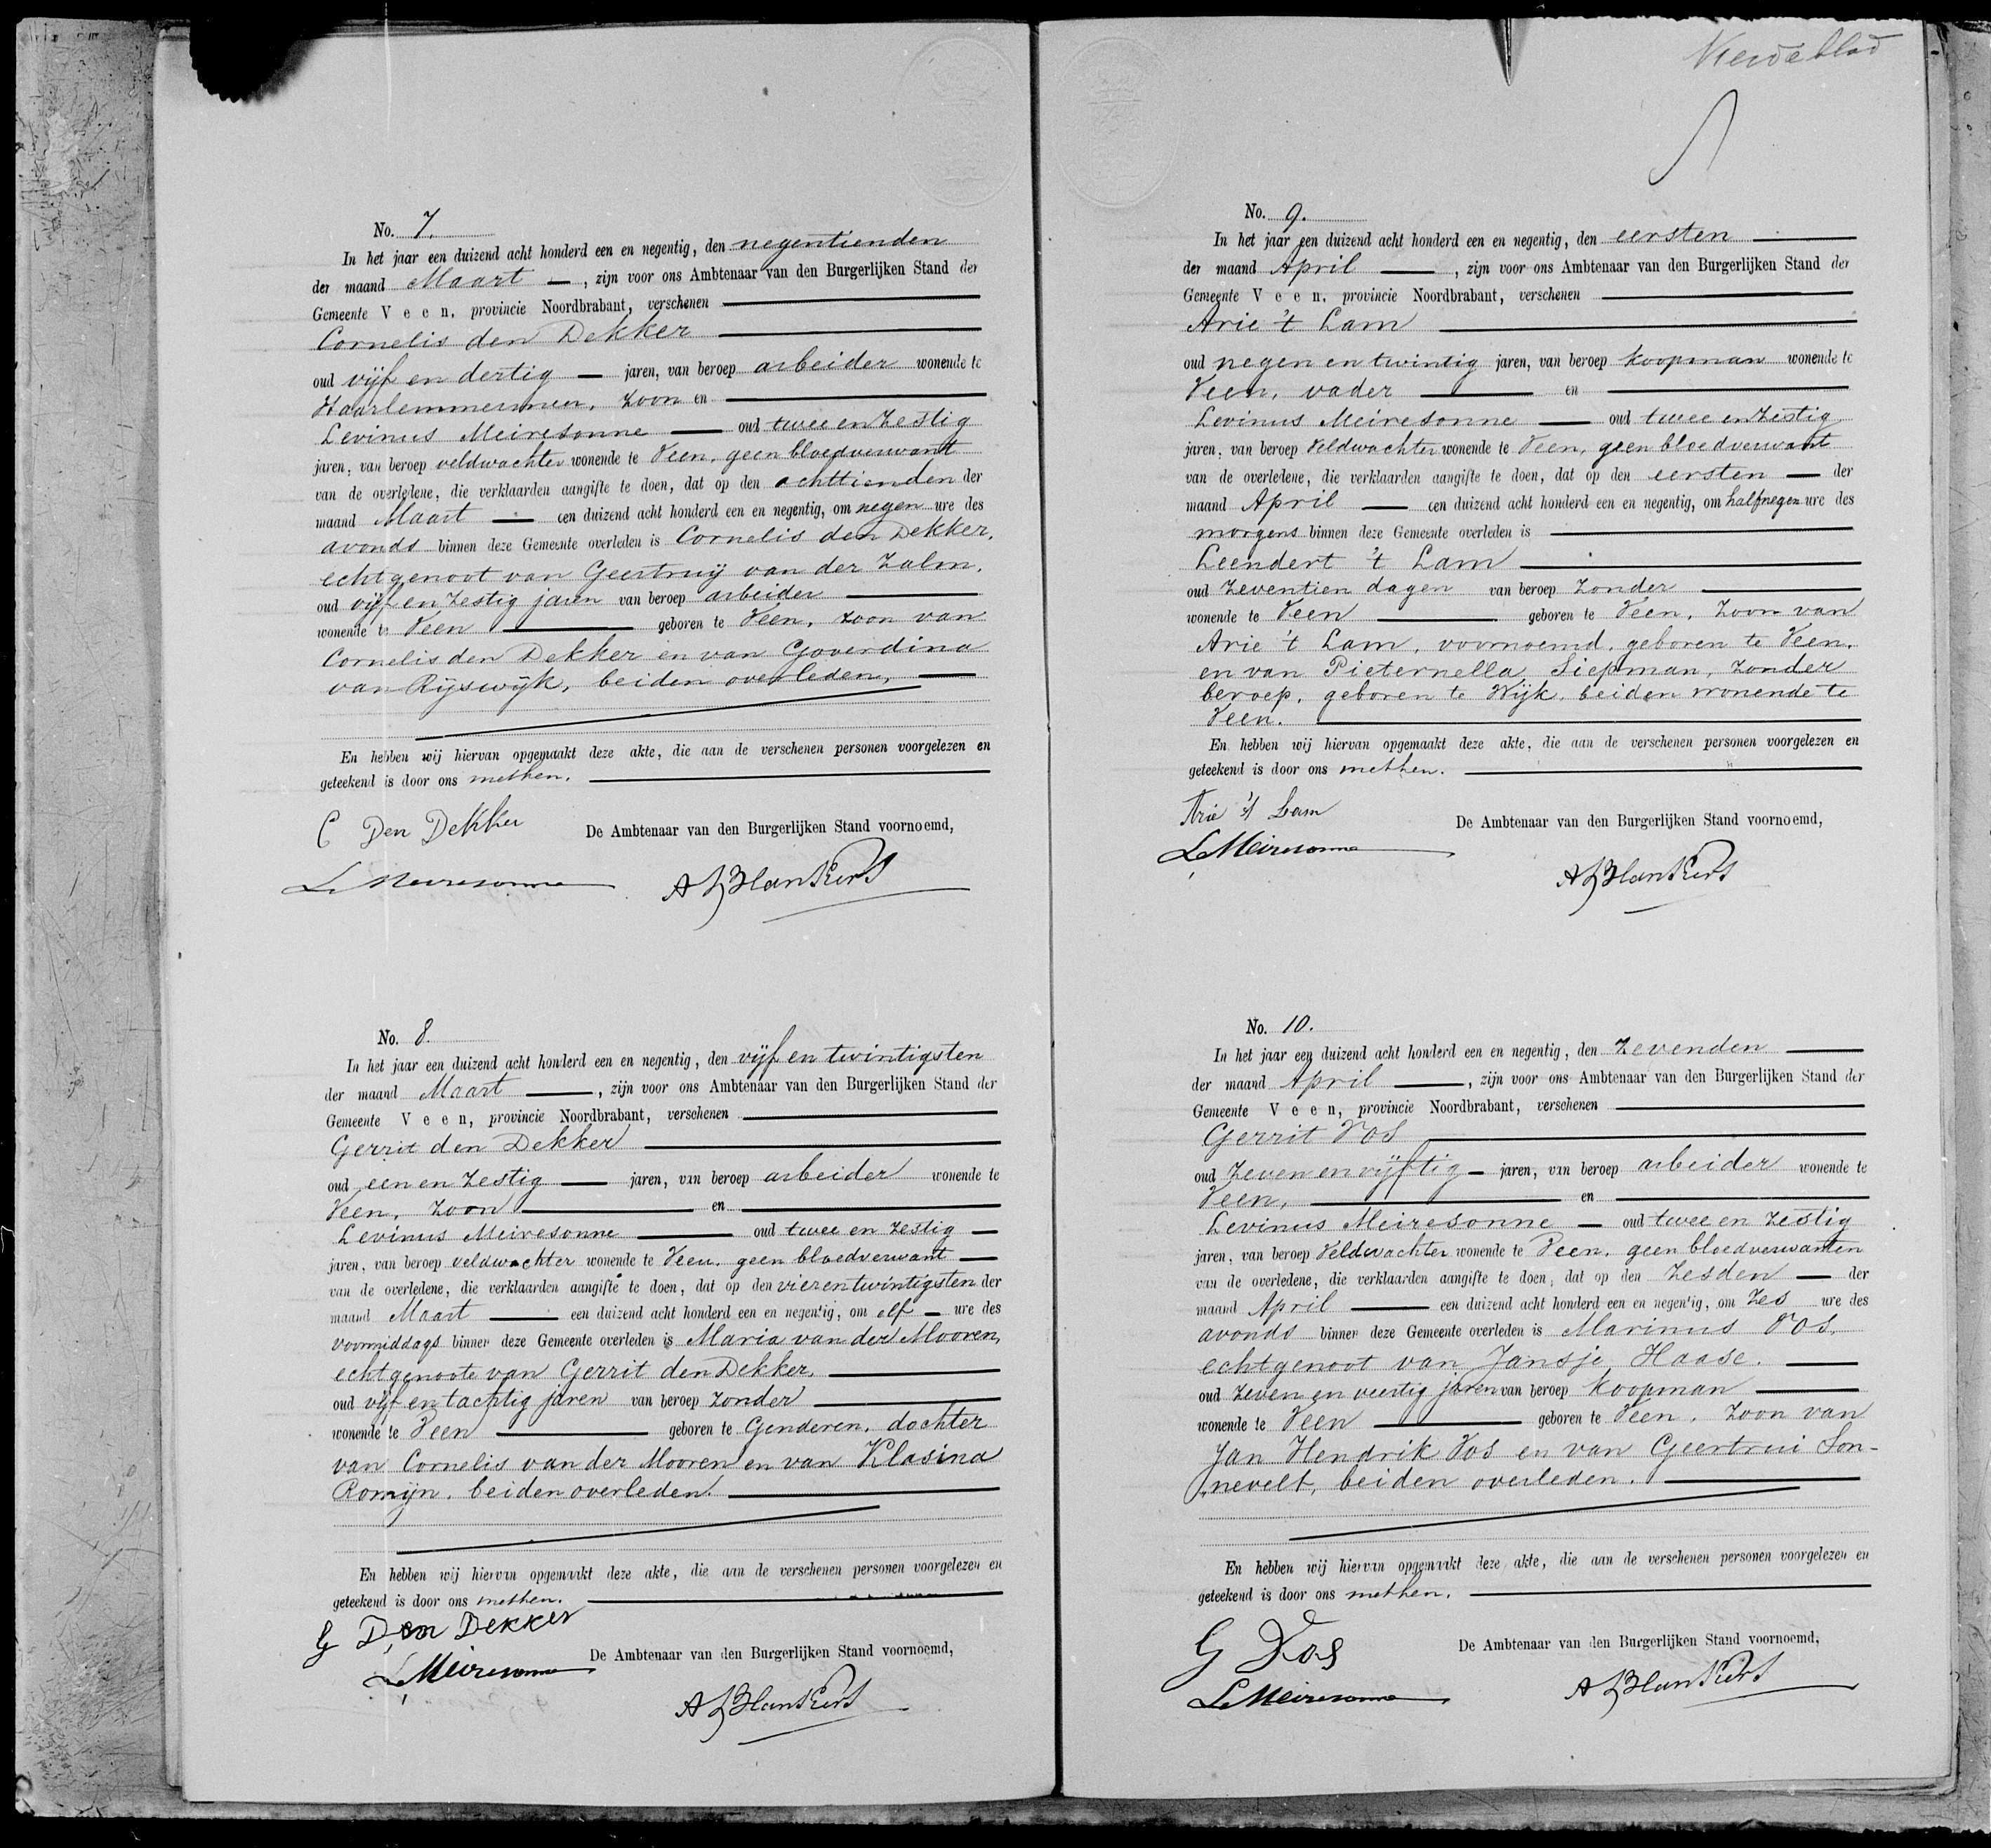 No. 7.
In het jaar een duizend acht honderd een en negentig, den negentienden
der maand Maart —, zijn voor ons Ambtenaar van den Burgerlijken Stand der
Gemeente Veen, provincie Noordbrabant, verschenen
Cornelis den Dekker
oud vijf en dertig — jaren, van beroep arbeider wonende te
Haarlemmermeer, zoon en
Levinus Meiresonne — oud twee en zestig
jaren, van beroep veldwachter wonende te Veen, geen bloedverwant
van de overledene, die verklaarden aangifte te doen, dat op den achttienden der
maand Maart — een duizend acht honderd een en negentig, om negen ure des
avonds binnen deze Gemeente overleden is Cornelis den Dekker,
echtgenoot van Geertruij van der Zalm,
oud vijf en zestig jaren van beroep arbeider
wonende te Veen — geboren te Veen, zoon van
Cornelis den Dekker en van Goverdina
van Rijswijk, beiden overleden,
En hebben wij hiervan opgemaakt deze akte, die aan de verschenen personen voorgelezen en
geteekend is door ons methen.
C Den Dekker
De Ambtenaar van den Burgerlijken Stand voornoemd,
L Meiresonne
A Blankers
No. 8.
In het jaar een duizend acht honderd een en negentig, den vijf en twintigsten
der maand Maart —, zijn voor ons Ambtenaar van den Burgerlijken Stand der
Gemeente Veen, provincie Noordbrabant, verschenen
Gerrit den Dekker
oud een en zestig — jaren, van beroep arbeider wonende te
Veen, zoon — en
Levinus Meiresonne — oud twee en zestig —
jaren, van beroep veldwachter wonende te Veen, geen bloedverwant —
van de overledene, die verklaarden aangifte te doen, dat op den vierentwintigsten der
maand Maart — een duizend acht honderd een en negentig, om elf — ure des
voormiddags binnen deze Gemeente overleden is Maria van der Mooren,
echtgenoote van Gerrit den Dekker,
oud vijf en tachtig jaren van beroep zonder
wonende te Veen — geboren te Genderen, dochter
van Cornelis van der Mooren en van Klasina
Romijn, beiden overleden.
En hebben wij hiervan opgemaakt deze akte, die aan de verschenen personen voorgelezen en
geteekend is door ons methen.
G Den Dekker
De Ambtenaar van den Burgerlijken Stand voornoemd,
L Meiresonne
A Blankers
Vierde blad
No. 9.
In het jaar een duizend acht honderd een en negentig, den eersten
der maand April —, zijn voor ons Ambtenaar van den Burgerlijken Stand der
Gemeente Veen, provincie Noordbrabant, verschenen
Arie 't Lam
oud negen en twintig jaren, van beroep koopman wonende te
Veen, vader — en
Levinus Meiresonne — oud twee en zestig
jaren, van beroep veldwachter wonende te Veen, geen bloedverwant
van de overledene, die verklaarden aangifte te doen, dat op den eersten — der
maand April — een duizend acht honderd een en negentig, om half negen ure des
morgens binnen deze Gemeente overleden is
Leendert 't Lam
oud zeventien dagen van beroep zonder
wonende te Veen — geboren te Veen, zoon van
Arie 't Lam, voornoemd, geboren te Veen,
en van Pieternella Siepman, zonder
beroep, geboren te Wijk, beiden wonende te
Veen.
En hebben wij hiervan opgemaakt deze akte, die aan de verschenen personen voorgelezen en
geteekend is door ons methen.
Arie 't Lam
De Ambtenaar van den Burgerlijken Stand voornoemd,
L Meiresonne
A Blankers
No. 10.
In het jaar een duizend acht honderd een en negentig, den zevenden
der maand April —, zijn voor ons Ambtenaar van den Burgerlijken Stand der
Gemeente Veen, provincie Noordbrabant, verschenen
Gerrit Vos
oud zeven en vijftig — jaren, van beroep arbeider wonende te
Veen, — en
Levinus Meiresonne — oud twee en zestig
jaren, van beroep veldwachter wonende te Veen, geen bloedverwanten
van de overledene, die verklaarden aangifte te doen, dat op den zesden — der
maand April — een duizend acht honderd een en negentig, om zes ure des
avonds binnen deze Gemeente overleden is Marinus Vos,
echtgenoot van Jansje Haase.
oud zeven en veertig jaren van beroep koopman
wonende te Veen — geboren te Veen, zoon van
Jan Hendrik Vos en van Geertrui Son-
nevelt, beiden overleden.
En hebben wij hiervan opgemaakt deze akte, die aan de verschenen personen voorgelezen en
geteekend is door ons methen.
G Vos
De Ambtenaar van den Burgerlijken Stand voornoemd,
L Meiresonne
A Blankers